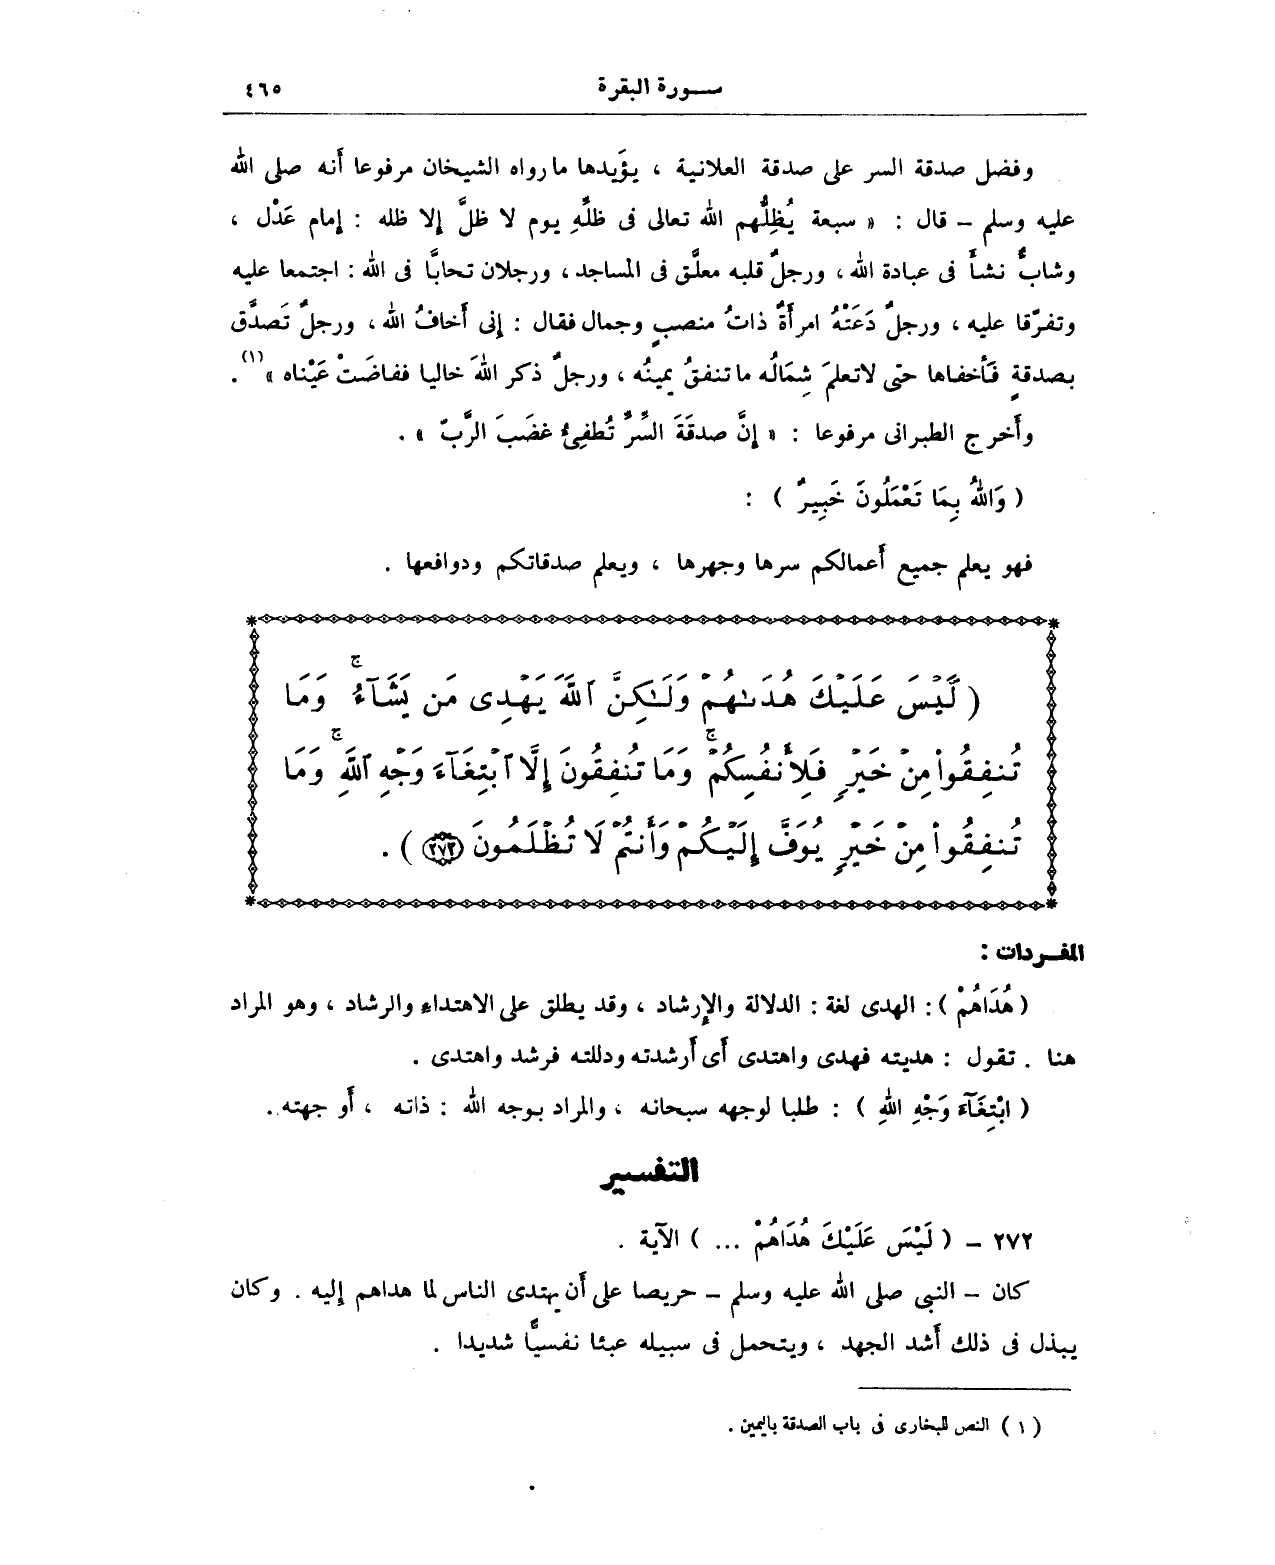 سورة البقرة ٤٦٥
وفضل صدقة السر على صدقة العلانية ، يؤَيدها ما رواه الشيخان مرفوعا أنه صلى الله
عليه وسلم – قال : « سبعة يُظِلُّهم الله تعالى فى ظلَّهِ يوم لا ظلَّ إلا ظله : إمام عَدْل ،
وشابٌّ نشأَ فى عبادة الله ، ورجلٌ قلبه معلَّق فى المساجد ، ورجلان تحابَّا فى الله : اجتمعا عليه
وتفرّقا عليه ، ورجلٌ دَعَتْهُ امرأَةٌ ذاتُ منصبٍ وجمال فقال : إنى أَخافُ الله ، ورجلٌ تَصدَّق
بصدقةٍ فأَخفاها حتى لاتعلمَ شِمَالُه ماتنفقُ يمينُه ، ورجلٌ ذكر اللهَ خاليا ففاضَتْ عَيْناه »(١) .
وأَخرج الطبرانى مرفوعا : « إنَّ صدقَةَ السِّرِّ تُطفِئُ غضَبَ الرَّبّ » .
( وَاللهُ بِمَا تَعْمَلُونَ خَبِيرٌ ) :
فهو يعلم جميع أَعمالكم سرها وجهرها ، ويعلم صدقاتكم ودوافعها .
( لَّيْسَ عَلَيْكَ هُدَىٰهُمْ وَلَٰكِنَّ ٱللَّهَ يَهْدِى مَن يَشَآءُ ۗ وَمَا
تُنفِقُوا۟ مِنْ خَيْرٍ فَلِأَنفُسِكُمْ ۚ وَمَا تُنفِقُونَ إِلَّا ٱبْتِغَآءَ وَجْهِ ٱللَّهِ ۚ وَمَا
تُنفِقُوا۟ مِنْ خَيْرٍ يُوَفَّ إِلَيْكُمْ وَأَنتُمْ لَا تُظْلَمُونَ ﴿٢٧٢﴾ ) .
المفردات :
( هُدَاهُمْ ) : الهدى لغة : الدلالة والإرشاد ، وقد يطلق على الاهتداء والرشاد ، وهو المراد
هنا . تقول : هديته فهدى واهتدى أَى أَرشدته ودللته فرشد واهتدى .
( ابْتِغَآءَ وَجْهِ اللهِ ) : طلبا لوجهه سبحانه ، والمراد بوجه الله : ذاته ، أَو جهته .
التفسير
٢٧٢ – ( لَيْسَ عَلَيْكَ هُدَاهُمْ ... ) الآية .
كان – النبى صلى الله عليه وسلم – حريصا على أَن يهتدى الناس لما هداهم إليه . وكان
يبذل فى ذلك أَشد الجهد ، ويتحمل فى سبيله عبئا نفسيًّا شديدا .
( ١ ) النص للبخارى فى باب الصدقة باليمين .